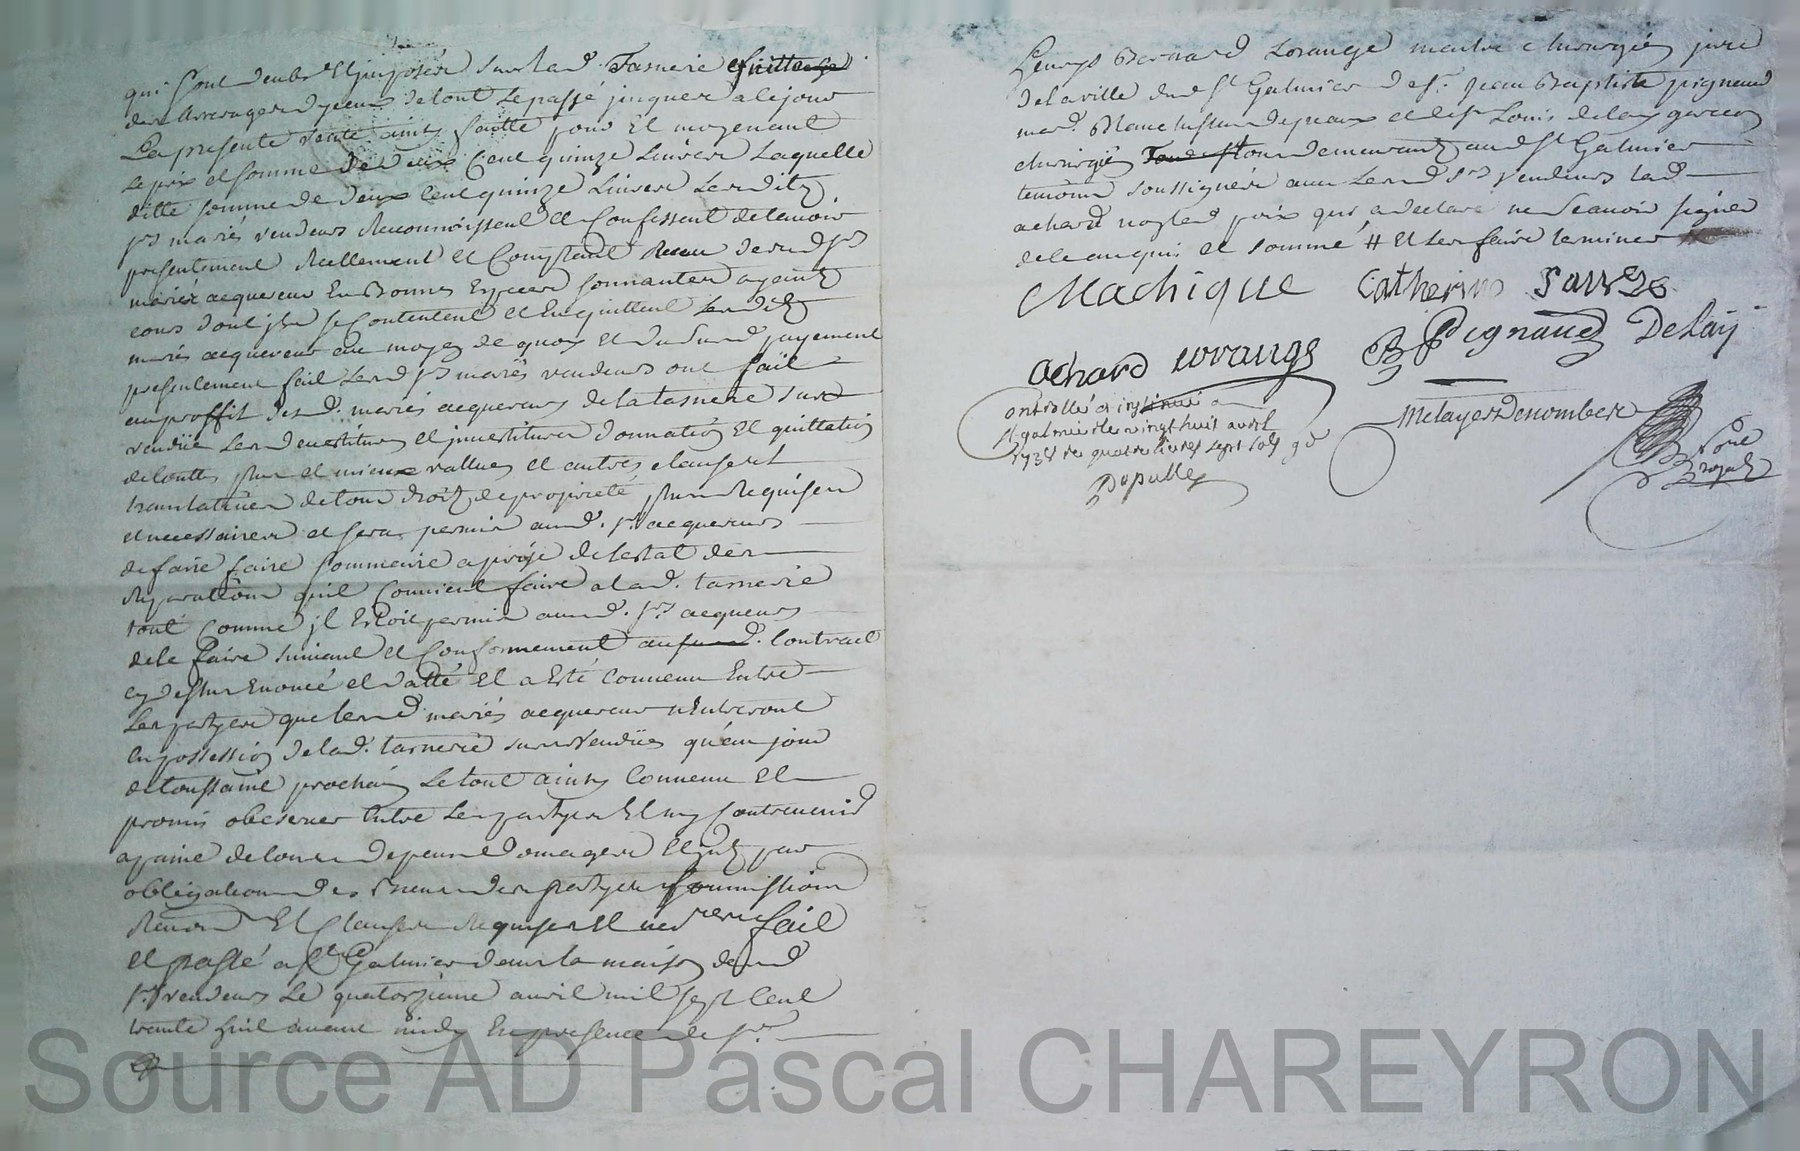 qui sont deubs et imposés sur lad. Tasnerie quitte
des arrerages d'yceux de tout le passé jusques a ce jour
La presente vente ainsy faitte pour et moyenant
Le prix et somme de deux Cent quinze Livres Laquelle
ditte somme de deux Cent quinze Livres Lesditz
srs mariés vendeurs Reconnoissent et Confessent detenoir
presentement Reellement et Comptant Receu desd srs
mariés acquereurs En Bonnes Especes sonnantes ayant
cours dont ils se Contentent et En quittent Lesditz
mariés acquereurs au moyen de quoy et dususd payement
presentement fait Lesd srs mariés vendeurs ont fait
au proffit desd. mariés acquereurs de la tasnerie susd
vendüe Les devestitures et investitures donnation et quittation
de touttes plus et mieux vallues et autres clauses
translatives de tous droitz de proprieté plus Requises
et necessaires et sera permis ausd. srs acquereurs
de faire faire sommaire aprise de lestat des
Reparations quil Convient faire a lad. tasnerie
tout comme il Estoit permis ausd. srs acquereurs
de le faire suivant et Conformement au susd. Contract
cy dessus Enoncé et datté Et a Esté Convenu Entre
Les partyes que lesd mariés acquereurs n'Entreront
En possession de lad. tasnerie susvendüe qu'au jour
de toussaint prochain Le tout ainsy Convenu Et
promis observer Entre Les partyes Et ny Contrevenir
a paine de tous depens domages Et par
obligations des Biens des partyes soumissions
Renon Et Clauses Requises Et necres fait
et passé a St Galmier dans la maison desd
srs vendeurs Le quatorzieme avril mil sept Cent
trente huit avant midy En presence de sr
Bernard Lorange maitre chirurgien juré
de la ville dud St Galmier de sr. Jean Baptiste pignaud
md. Blanchisseur de peaux et de sr Louis delay garcon
chirurgien tous demeurants aud St Galmier
temoins soussignés avec Lesd srs vendeurs lad
achard non led prix qui a declaré ne scavoir signer
de ce enquis et sommé # et Les faire terminer
Machique Catherine Sauze
achard Lorange B Pignaud Delay
ontrollé et insinué a
st galmier le vingt huit avril
1738 re quatre livres sept sols
Depulles
Melayes Denombere
Noe
Royal
Source AD Pascal CHAREYRON